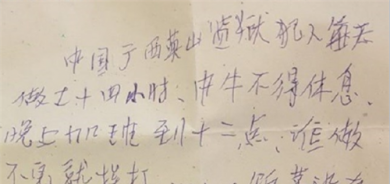 中国广西英山监狱犯人每天
做工十四小时、中午不得休息、
晚上加班到十二点、谁做
不完就挨打